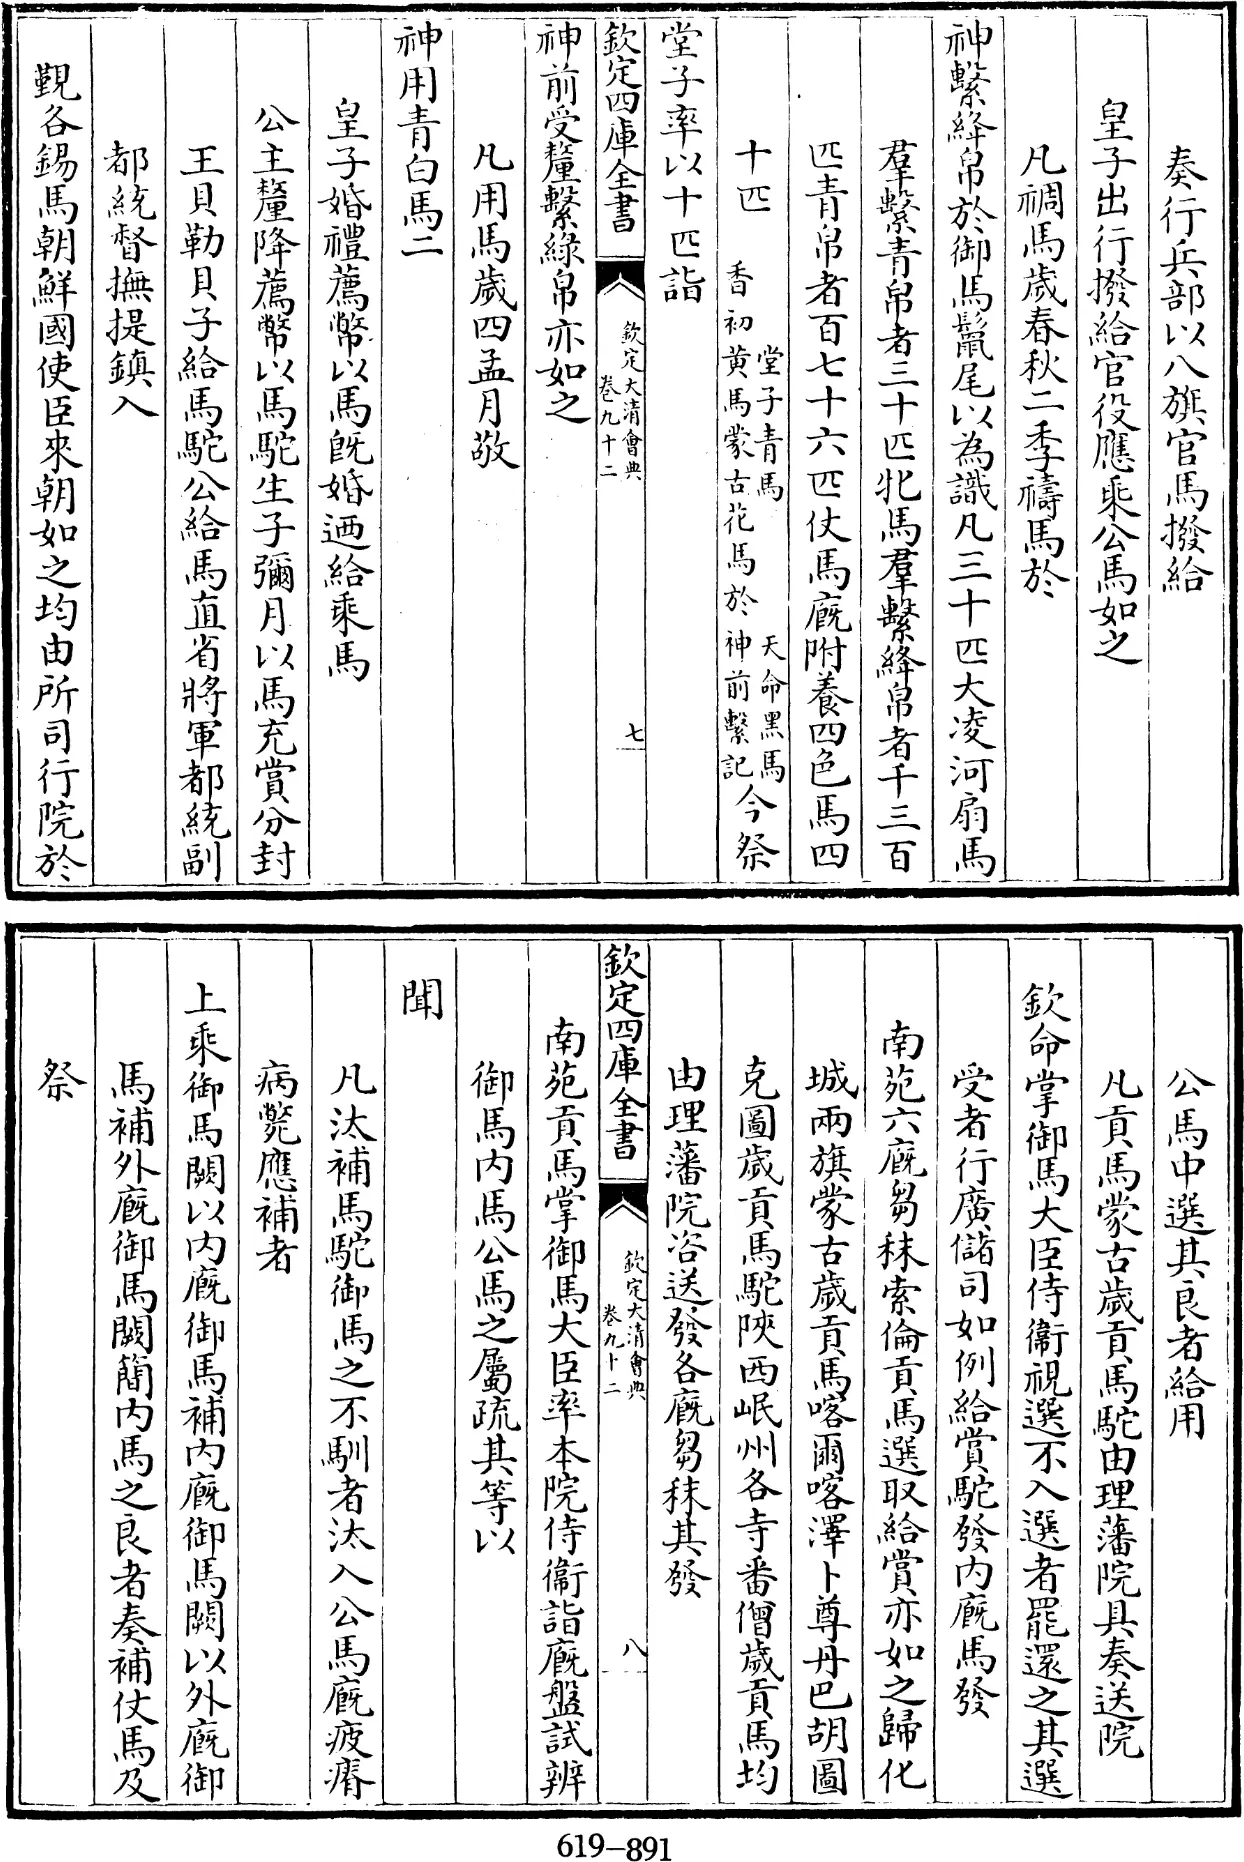 奏行兵部以八旗官馬撥給
皇子出行撥給官役應乘公馬如之
凡禂馬歲春秋二季禱馬於
神繫絳帛於御馬鬛尾以為識凡三十匹大凌河扇馬
羣繫青帛者三十匹牝馬羣繫絳帛者千三百
匹青帛者百七十六匹仗馬廐附養四色馬四
十匹
堂子青馬 天命黑馬
香初黄馬蒙古花馬於神前繫記
今祭
堂子率以十匹詣
欽定四庫全書
欽定大清會典
卷九十二
七
神前受釐繫綠帛亦如之
凡用馬歲四孟月敬
神用青白馬二
皇子婚禮薦幣以馬旣婚迺給乘馬
公主釐降薦幣以馬駝生子彌月以馬充賞分封
王貝勒貝子給馬駝公給馬直省將軍都統副
都統督撫提鎮入
覲各錫馬朝鮮國使臣來朝如之均由所司行院於
公馬中選其良者給用
凡貢馬蒙古歲貢馬駝由理藩院具奏送院
欽命掌御馬大臣侍衞視選不入選者罷還之其選
受者行廣儲司如例給賞駝發内廐馬發
南苑六廐芻秣索倫貢馬選取給賞亦如之歸化
城兩旗蒙古歲貢馬喀爾喀澤卜尊丹巴胡圖
克圖歲貢馬駝陜西岷州各寺番僧歲貢馬均
由理藩院咨送發各廐芻秣其發
欽定四庫全書
欽定大清會典
卷九十二
八
南苑貢馬掌御馬大臣率本院侍衞詣廐盤試辨
御馬内馬公馬之屬疏其等以
聞
凡汰補馬駝御馬之不馴者汰入公馬廐疲瘠
病斃應補者
上乘御馬闕以内廐御馬補内廐御馬闕以外廐御
馬補外廐御馬闕簡内馬之良者奏補仗馬及
祭
619-891